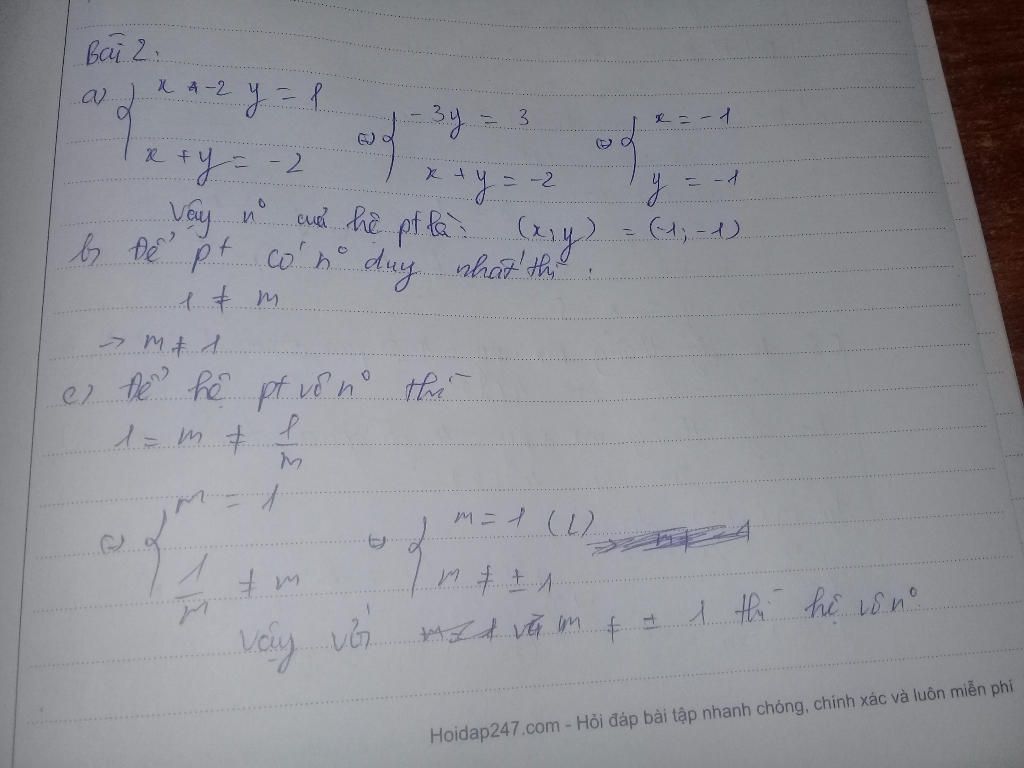 Bài 2:
a) { x + -2 y = 1 (=) { -3y = 3 (=) { x = -1
x + y = -2 x + y = -2 y = -1
Vậy n° của hệ pt là: (x,y) = (-1; -1)
b) Để pt có n° duy nhất thì:
1 ≠ m
-> m ≠ 1
c) Để hệ pt vô n° thì
1 = m ≠ 1/m
(=) { m = 1 (=) { m = 1 (L)
1/m ≠ m m ≠ ± 1
Vậy với m ≠ ± 1 thì hệ vô n°
Hoidap247.com - Hỏi đáp bài tập nhanh chóng, chính xác và luôn miễn phí